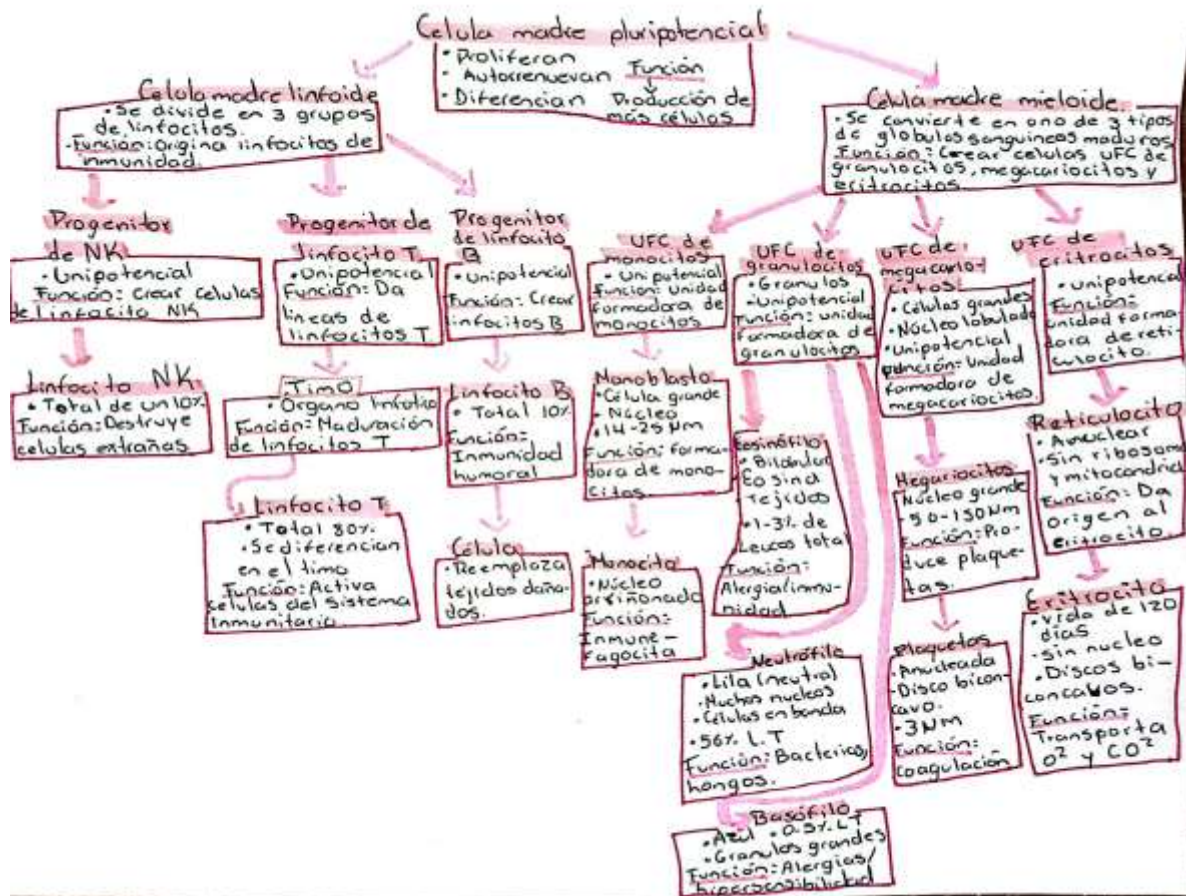 Celula madre pluripotencial
• Proliferan
• Autorrenuevan Función
• Diferencian Producción de
más células
Celula madre linfoide
• Se divide en 3 grupos
de linfocitos.
• Función: Origina linfocitos de
inmunidad.
Célula madre mieloide.
• Se convierte en uno de 3 tipos
de globulos sanguineos maduros
Función: Crear celulas UFC de
granulocitos, megacariocitos y
eritrocitos.
Progenitor
de NK
• Unipotencial
Función: Crear celulas
de linfocito NK
Linfocito NK
• Total de un 10%
Función: Destruye
celulas extrañas.
Progenitor de
linfocito T
• Unipotencial
Función: Da
lineas de
linfocitos T
Timo
• Organo linfatico
Función: Maduración
de linfocitos T
Linfocito T
• Total 80%
• Se diferencian
en el timo
Función: Activa
celulas del sistema
inmunitario.
Progenitor
de linfocito
B
• Unipotencial
Función: Crear
linfocitos B
Linfocito B
• Total 10%
Función:
Inmunidad
humoral
Célula
• Reemplaza
tejidos daña-
dos.
UFC de
monocitos
• Unipotencial
Función: Unidad
formadora de
monocitos
Monoblasto
• Célula grande
• Núcleo
• 14-25 Nm
Función: forma-
dora de mono-
citos.
Monocito
• Núcleo
arriñonado
Función:
Inmune-
Fagocita
UFC de
granulocitos
• Granulos
• Unipotencial
Función: unidad
formadora de
granulocitos
Eosinófilo
• Bilobular
Eosina
Tejidos
• 1-3% de
Leucos total
Función:
Alergia/inmu-
nidad
Neutrófilo
• Lila (neutro)
• Muchos nucleos
• Células en banda
• 56% L.T
Función: Bacterias,
hongos.
Basófilo
• Azul • 0.5% L.T
• Granulos grandes
Función: Alergias/
hipersensibilidad
UFC de
megacario-
citos
• Células grandes
• Núcleo lobulado
• Unipotencial
Función: Unidad
formadora de
megacariocitos
Megariocitos
• Núcleo grande
• 50-150 Nm
Función: Pro-
duce plaque-
tas.
Plaquetas
• Anucleada
• Disco bicon-
cavo.
• 3 Nm
Función:
coagulación
UFC de
eritrocitos
• unipotencial
Función:
unidad forma-
dora de reti-
culocito.
Reticulocito
• Anuclear
• Sin ribosoma
y mitocondria
Función: Da
origen al
eritrocito.
Eritrocito
• Vida de 120
días
• Sin nucleo
• Discos bi-
concavos.
Función:
Transporta
O² y CO²